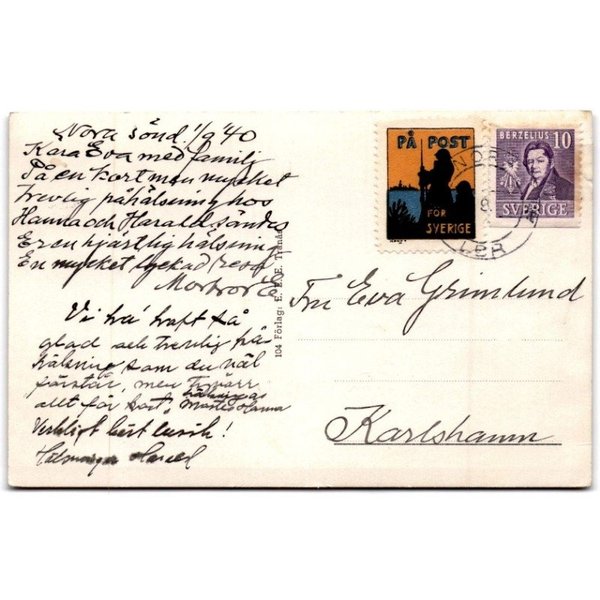 Nora sönd. 1/9 '40
Kära Eva med familj
På en kort men mycket
trevlig påhälsning hos
Hanna och Harald sändes
Er en hjärtlig hälsning
En mycket lyckad resa
Vi ha' haft så
glad och trevlig på-
hälsning som du väl
förstår, men tyvärr
allt för kort,
Moster Hanna
Verkligt
Harald
104 Förlag: E. F. E. Tranås
PÅ POST
FÖR
SVERIGE
BERZELIUS 10
SVERIGE
Fru Eva Grimlund
Karlshamn